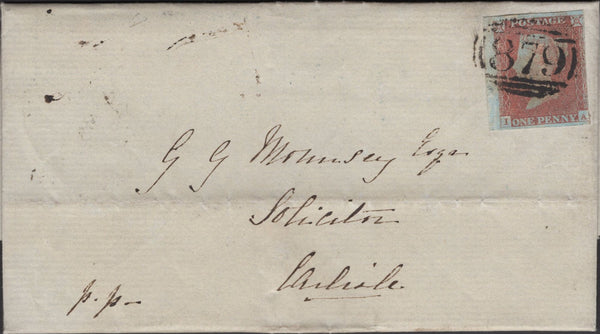 POSTAGE
879
I ONE PENNY A
G G Mounsey Esqr
Solicitor
Carlisle
p.p.